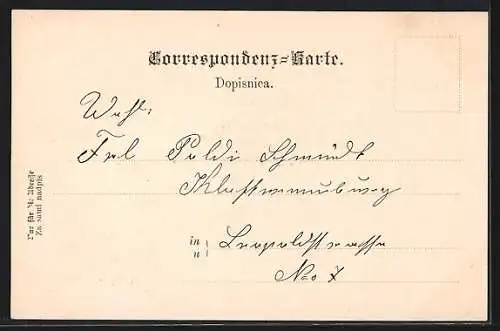 Correspondenz-Karte.
Dopisnica.
Wohl:
Frl Poldi Schmidt
Klosterneuburg
in
u
Leopoldstrasse
No 7
Nur für die Adresse
Za sami nadpis